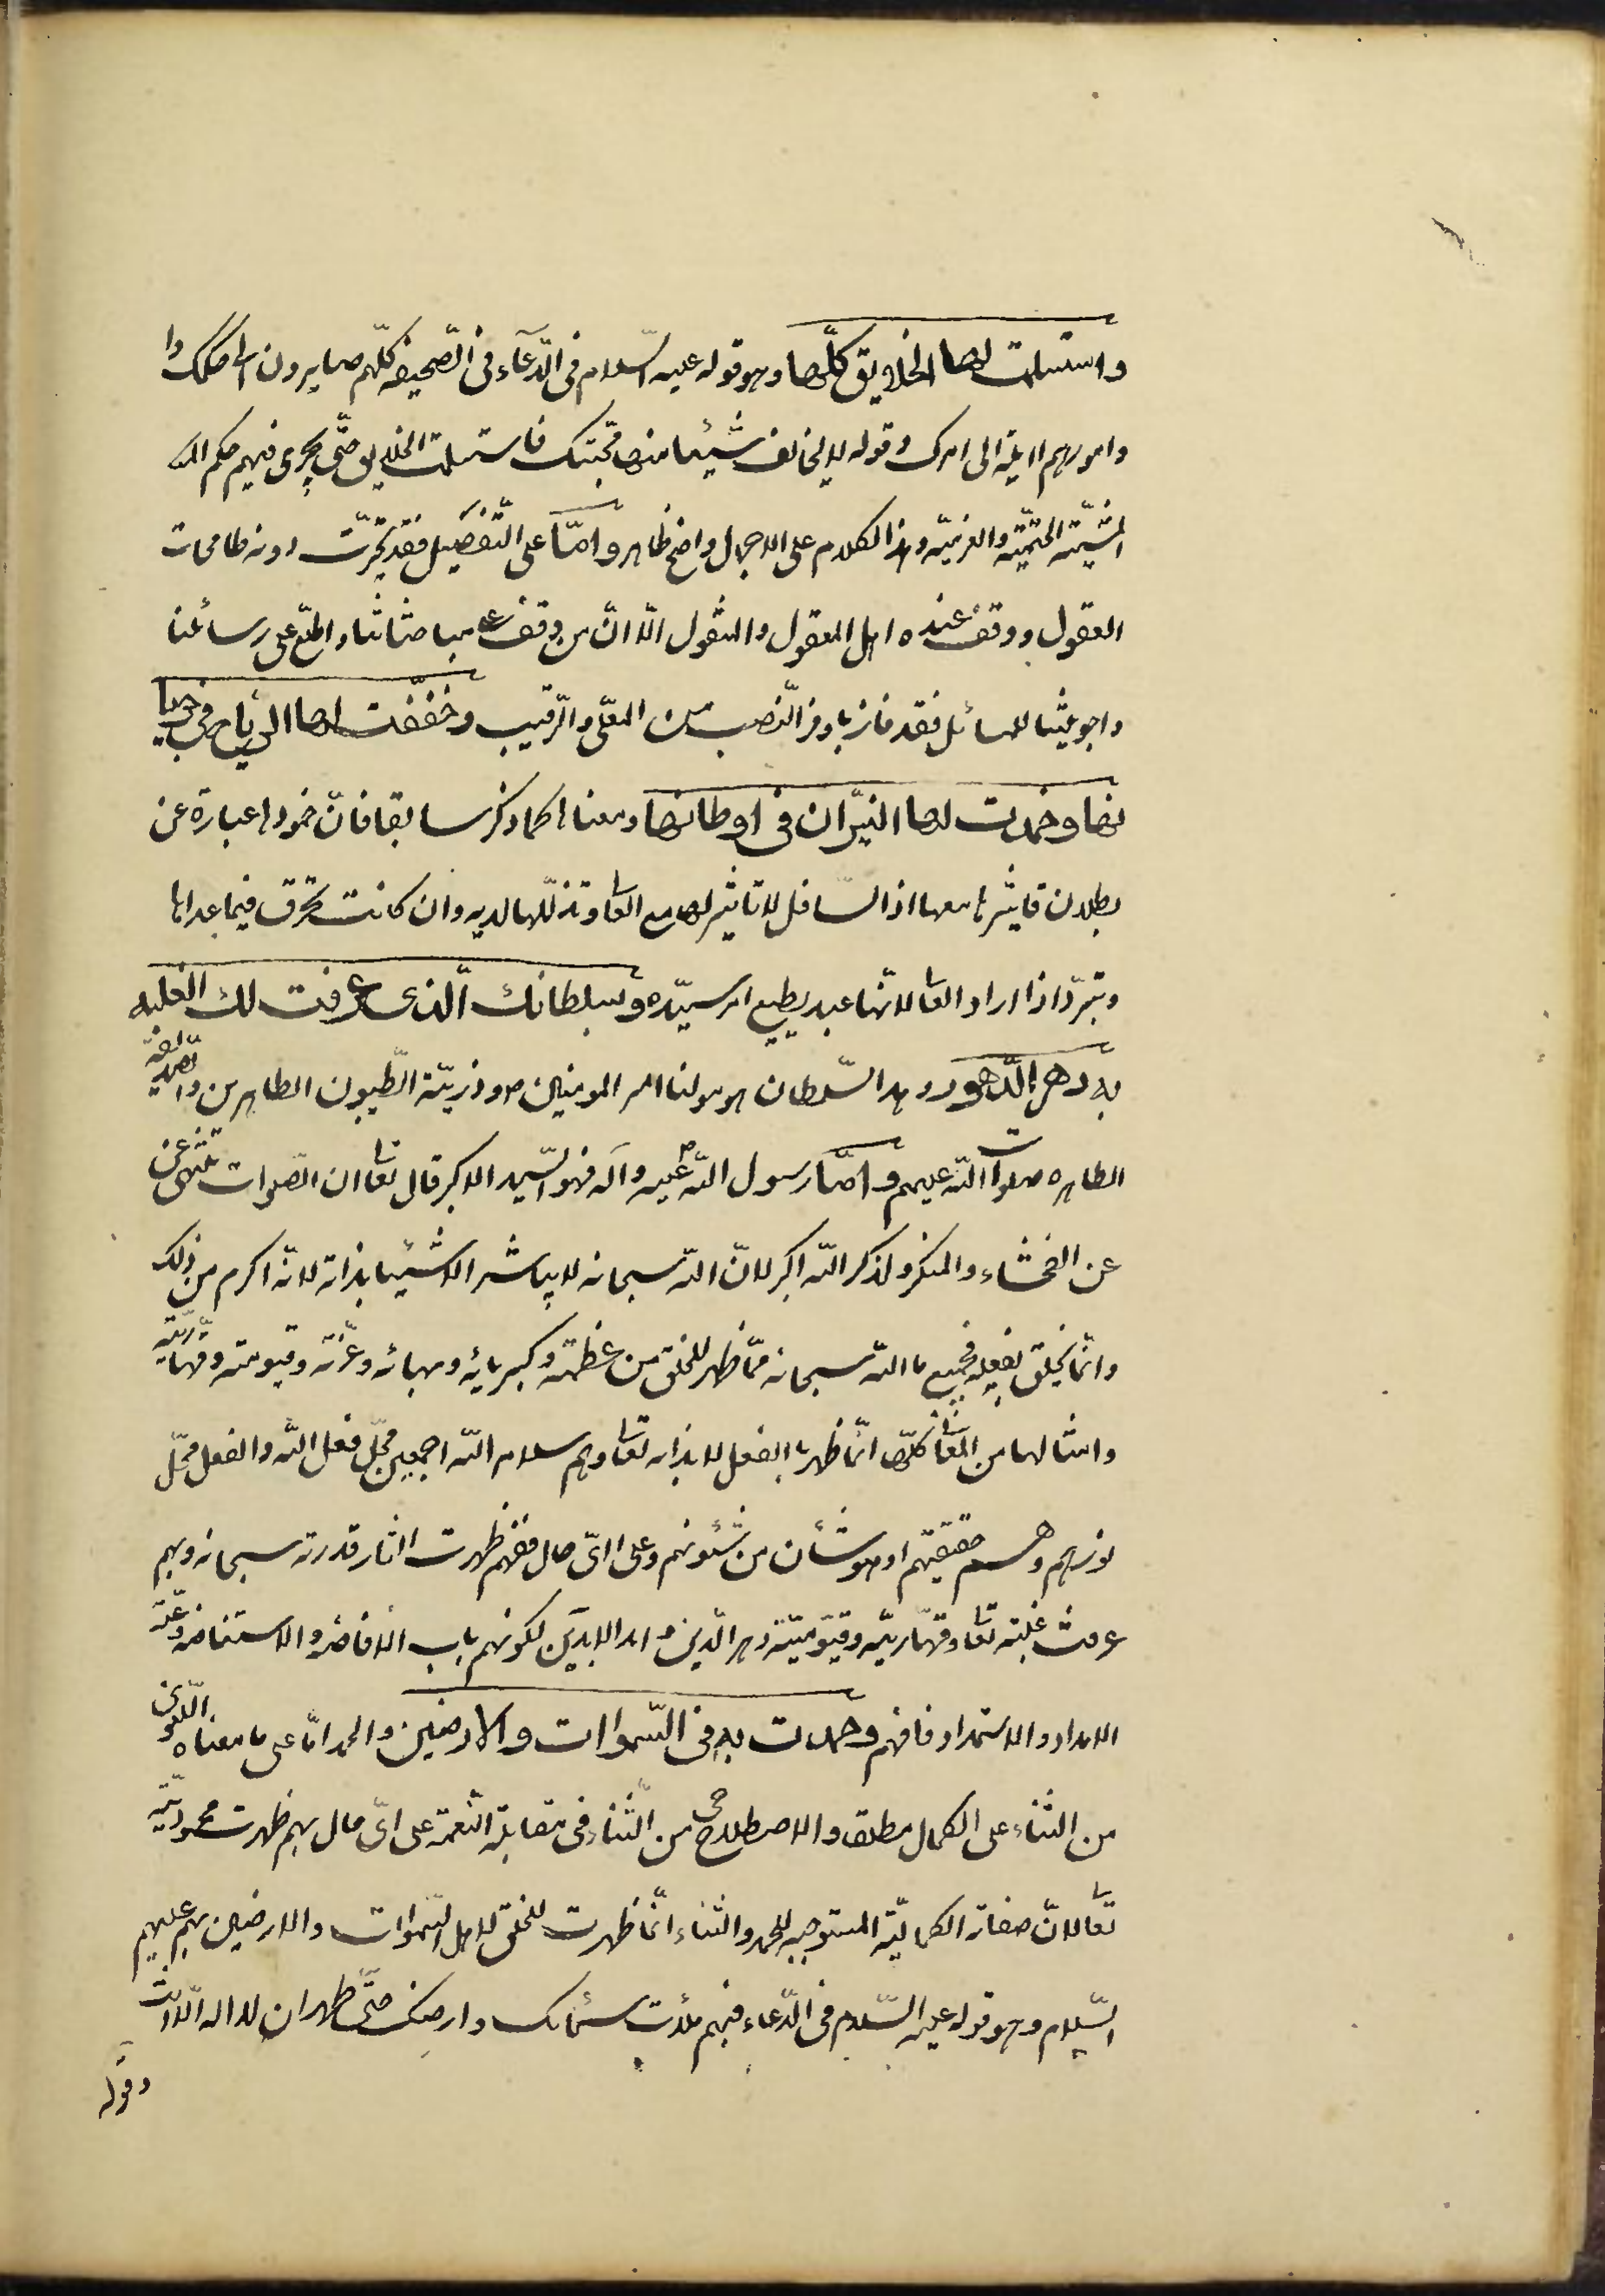 واستسلمت لها الخلایق کلّها وهو قوله علیه السّلام فی الدّعاء فی الصّحیفه کلّهم صایرون الی حکمک وا
وامورهم ائلة الی امرک وقوله لا یخالف شیئا منها محبّتک فاستسلمت الخلایق حتّی یجری فیهم حکم الله
المشیّته الحتمیّته والعزمیّه وهذا الکلام علی الاجمال واضح ظاهر وامّا علی التّفصیل فقد تحیّرت دونه طامحات
العقول ووقف عنده اهل المعقول والمنقول الّا انّ من وقف علی مباحثاثنا واطّلع علی رسائلنا
واجوبتنا للمسائل فقد فاز باوفر النّصیب من المعلّی والرّقیب وخفقت لها الریاح فی جریا
نها وخمدت لها النیّران فی اوطانها ومعناها کما ذکر سابقا فانّ خمودها عبارة عن
بطلان تاثیرها معها اذ السّافل لا تاثیر له مع العالی وتذلّلها لدیه وان کانت تحرق فیما عداها
وتبرد اذا اراد العالی لانّها عبد یطیع امر سیّده وبسلطانک الّذی عرفت لک الغلبه
به دهر الدّهور وهذا السّلطان هو مولنا امیر المومنین ص وذریّته الطّیبون الطاهرین والصدیقة
الطاهره صلوات الله علیهم وامّا رسول الله ص علیه وآله فهو السّید الاکبر قال تعا ان الصّلوات تنهی عن
عن الفحشاء والمنکر ولذکر الله اکبر لانّ الله سبحانه لا یباشر الاشیا بذاته لانّه اکرم من ذلک
وانّما یخلق بفعله فجمیع ما الله سبحانه ممّا ظهر للخلق من عظمته وکبریائه وبهائه وعزّته وقیومیته وقهّاریّته
وامثالها من المعانی کلّها انّما ظهر بالفعل لا بذاته تعا وهم سلام الله اجمعین محلّ فعل الله والفعل محلّ
نورهم وهم حقیقتهم او هو شأن من شئونهم وعلی ایّ حال ففیهم ظهرت اثار قدرته سبحانه وبهم
عرفت غلبته تعا وقهّاریّه وقیّومیّته دهر الدّهرین وابد الابدین لکونهم باب الافاضه والاستفاضه وعلّة
الامداد والاستمداد فافهم وحمدت به فی السّموات والارضین والحمد امّا علی ما معناه اللّغوی
من الثّناء علی الکمال مطلقا والاصطلاحی من الثّناء فی مقابلة النّعمة علی ایّ حال بهم ظهرت محمودیّته
تعا لانّ صفاته الکمالیّة المستوجبه للحمد والثناء انّما ظهرت للخلق لاهل السّموات والارضین بهم علیهم
السّلام وهو قوله علیه السّلام فی الدّعاء فبهم ملأت سمائک وارضک حتّی ظهر ان لا اله الّا انت
وقوله